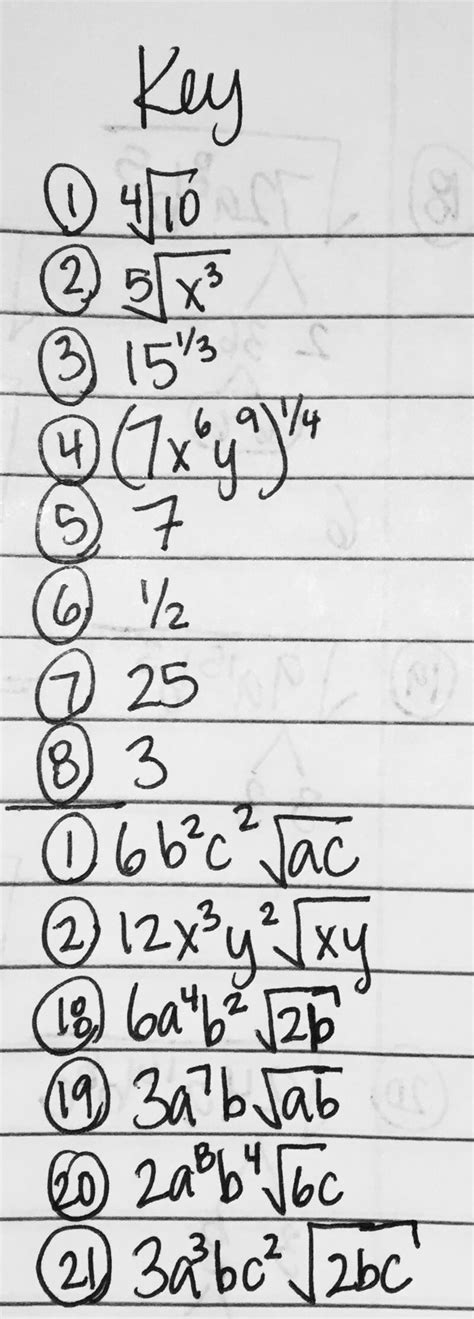 Key
① ∜10
② ⁵√x³
③ 15^1/3
④ (7x⁶y⁹)^1/4
⑤ 7
⑥ 1/2
⑦ 25
⑧ 3
① 6b²c²√ac
② 12x³y²√xy
⑱ 6a⁴b²√2b
⑲ 3a⁷b√ab
⑳ 2a⁸b⁴√6c
㉑ 3a³bc²√2bc